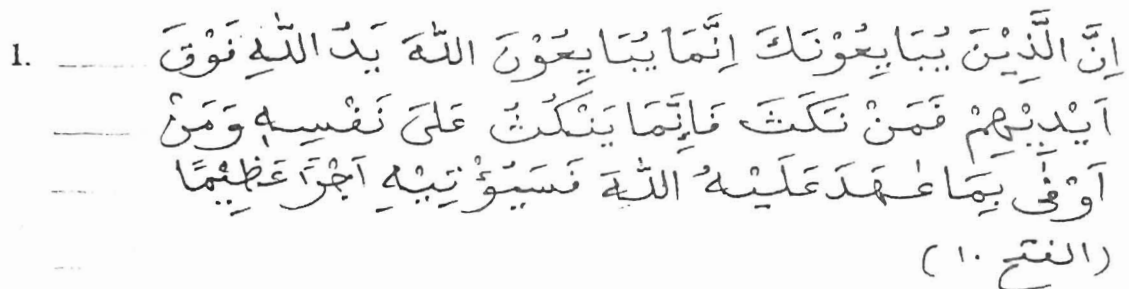 1. اِنَّ الَّذِيْنَ يُبَايِعُوْنَكَ اِنَّمَا يُبَايِعُوْنَ اللّٰهَ يَدُ اللّٰهِ فَوْقَ
اَيْدِيْهِمْ فَمَنْ نَكَثَ فَاِنَّمَا يَنْكُثُ عَلىَ نَفْسِهٖ وَمَنْ
اَوْفٰى بِمَا عٰهَدَ عَلَيْهُ اللّٰهَ فَسَيُؤْتِيْهِ اَجْرًا عَظِيْمًا
(الفتح ١٠)